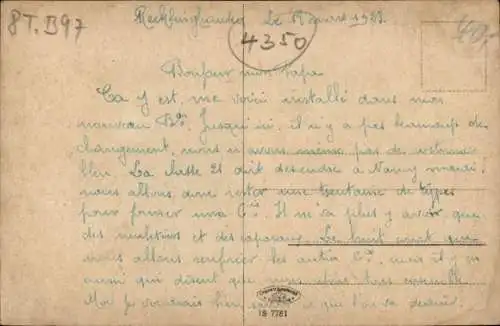 8T.B97
Recklinghausen Le 18 mars 1923.
4350
40,-
Bonjour mon Papa
Ca y est, me voici installé dans mon
nouveau Bon. Jusqu'ici, il n'y a pas beaucoup de
changement, nous n'avons même pas de
bleu. La classe 21 doit descendre à Nancy mardi,
nous allons donc rester une trentaine de types
pour former ma Cie. Il ne va plus y avoir que
des muletiers et des caporaux. Le bruit court que
nous allons renforcer les autres Cies, mais il y en
aussi qui disent que nous irons tous ensemble
Moi je voudrais bien que l'on va devenir.
18-7781